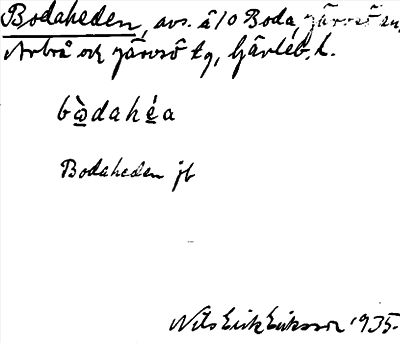 Bodaheden, avs. å 10 Boda, Järvsö sn,
Arbrå och Järvsö tg, Gävleb. l.
bo̱dahe̱a
Bodaheden jb
Nils Erik Eriksson 1935.